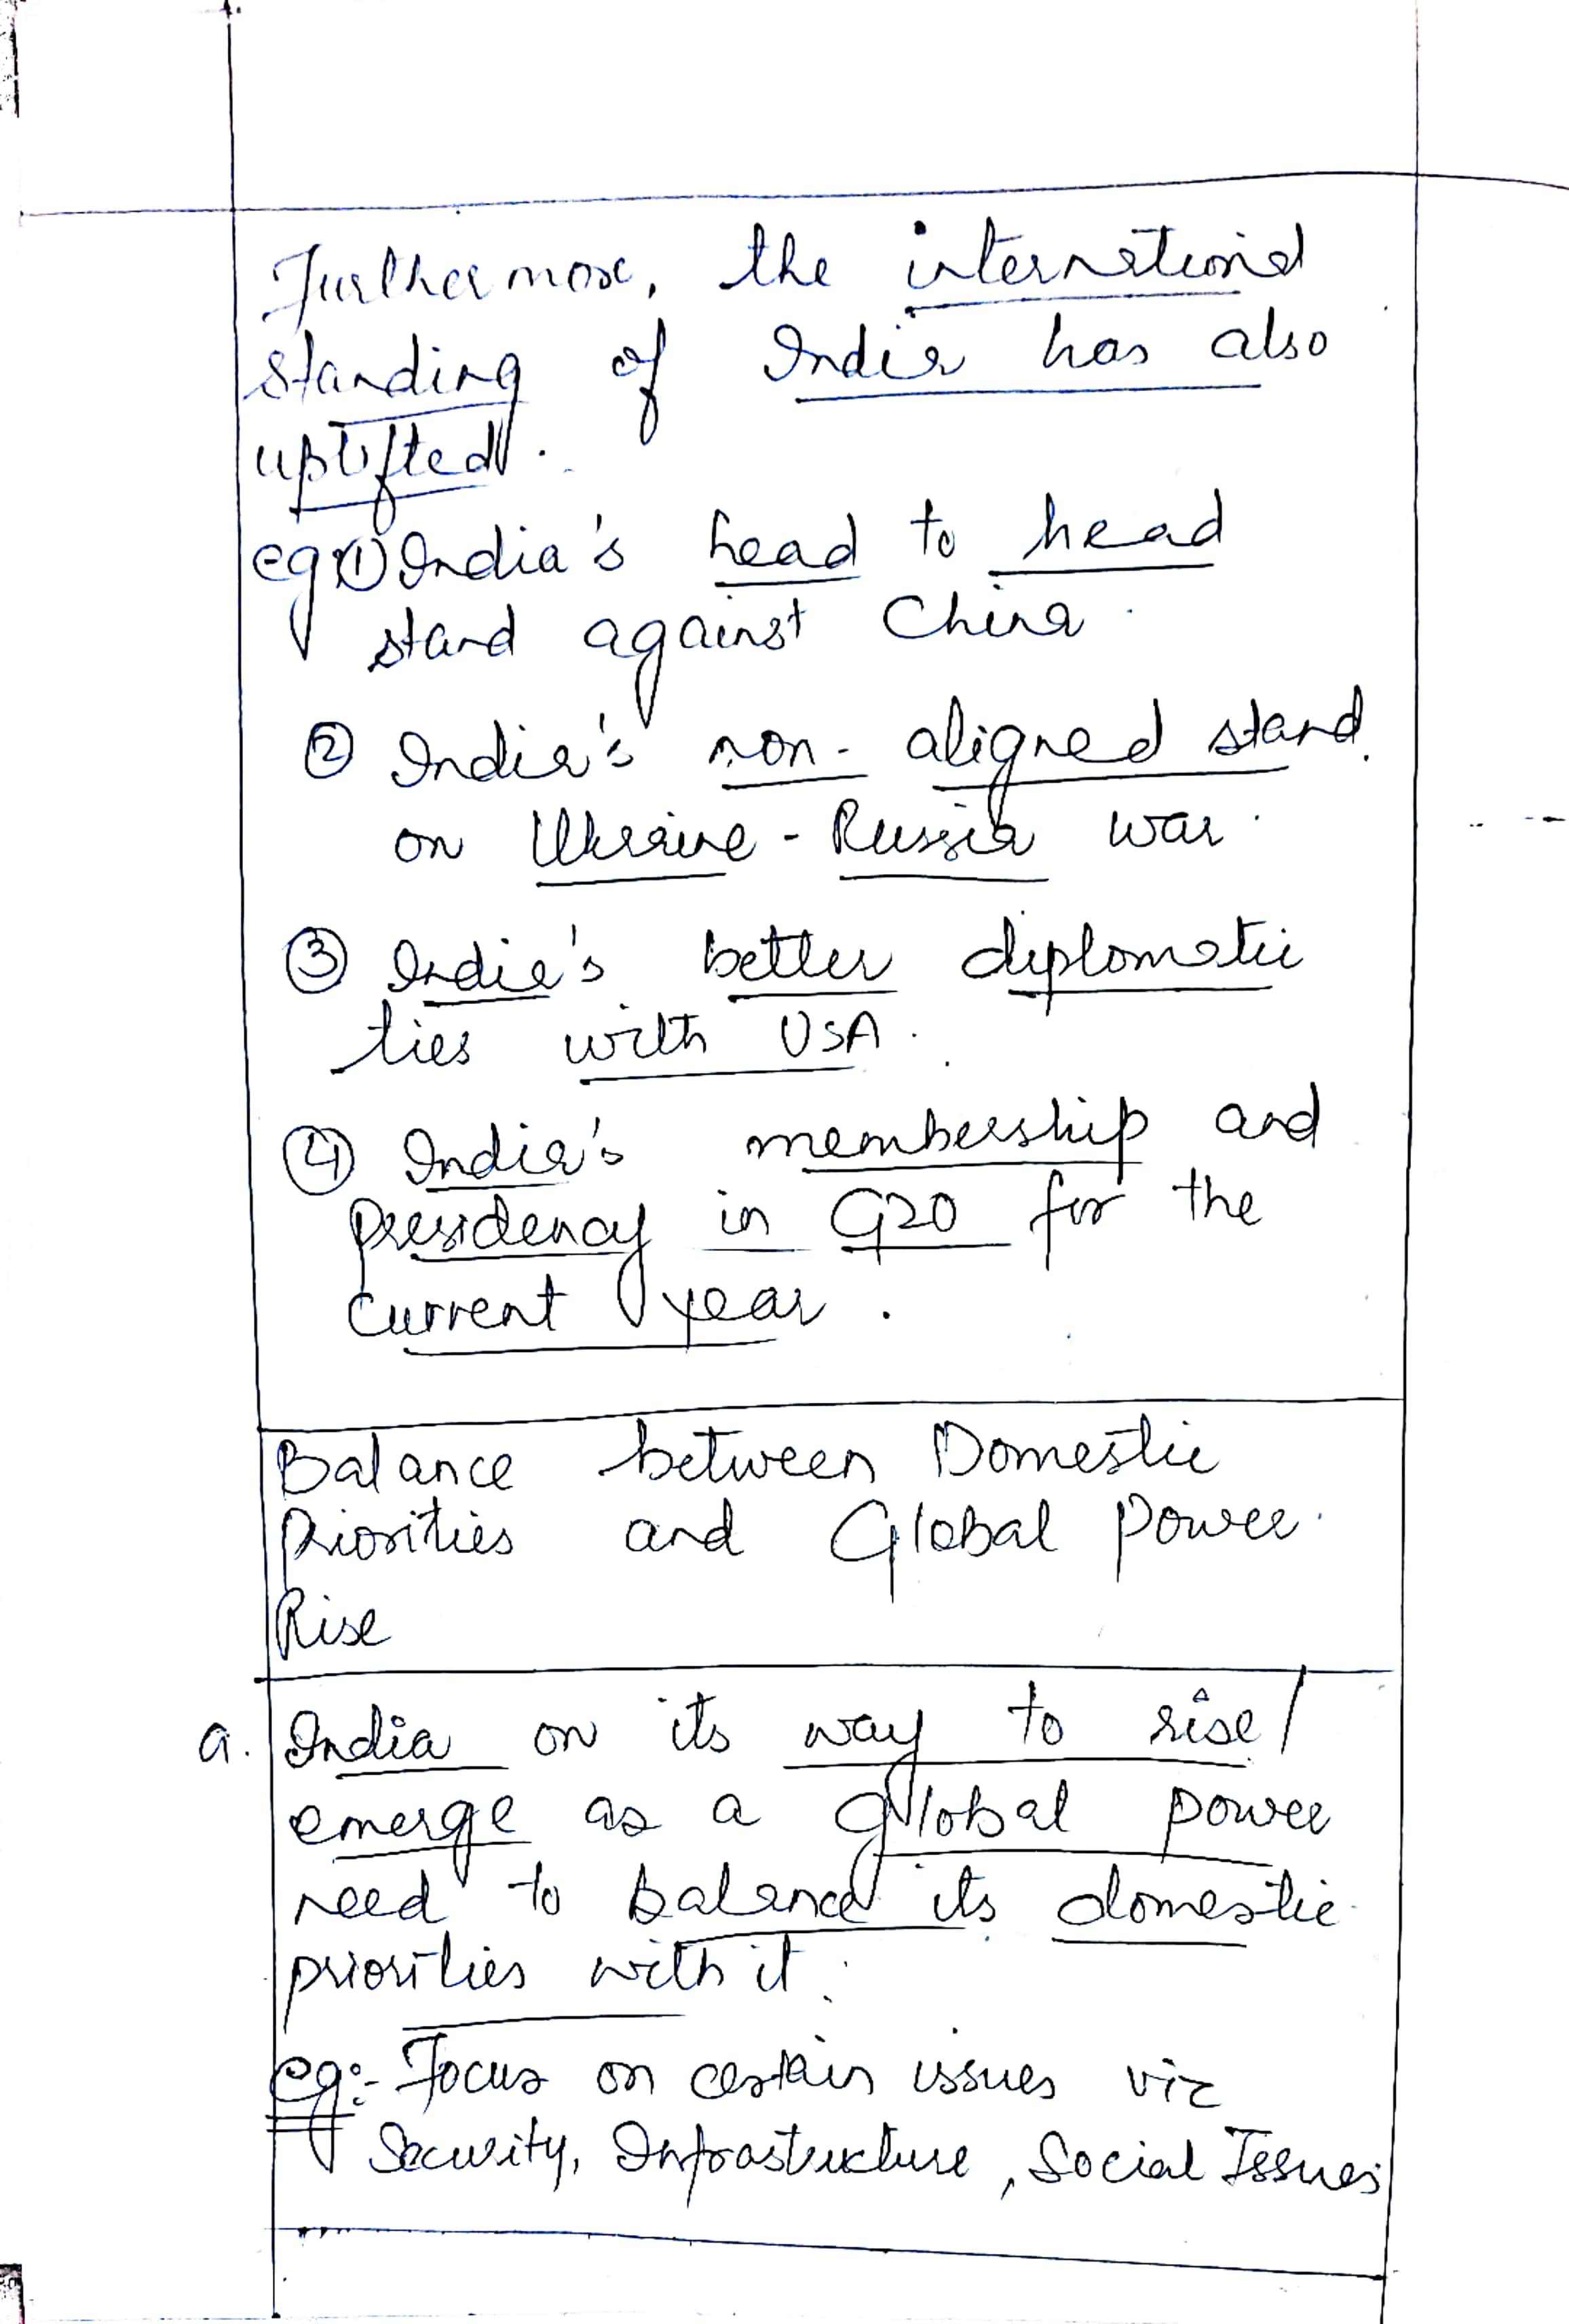 Furthermore, the international
standing of India has also
uplifted.
eg ① India's head to head
stand against China.
② India's non-aligned stand
on Ukraine-Russia war.
③ India's better diplomatic
ties with USA.
④ India's membership and
presidency in G20 for the
current year.
Balance between Domestic
Priorities and Global Power
Rise
a. India on its way to rise/
emerge as a global power
need to balance its domestic
priorities with it.
eg:- Focus on certain issues viz
Security, Infrastructure, Social Issues